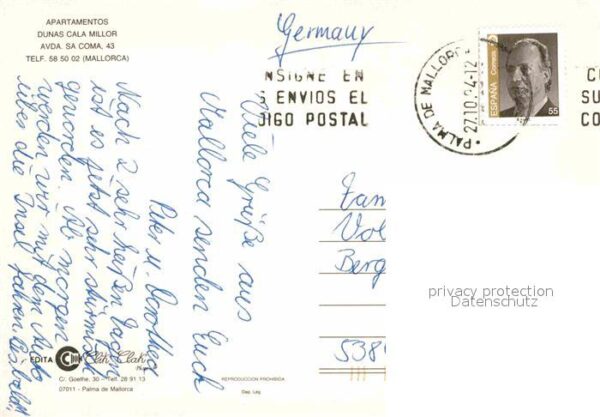 APARTAMENTOS
DUNAS CALA MILLOR
AVDA. SA COMA, 43
TELF. 58 50 02 (MALLORCA)
Germany
NSIGNE EN
ENVIOS EL
DIGO POSTAL
PALMA DE MALLORCA
27.10.94-12
ESPAÑA
Correos
55
CO
SU
CO
Viele Grüße aus
Mallorca senden Euch
Peter u. Dorothea
Nach 2 sehr heißen Tagen
ist es jetzt sehr stürmisch
geworden. Ab morgen
werden wir mit dem Auto
über die Insel fahren. Bis bald!
Fam
Vol
Berg
538
privacy protection
Datenschutz
EDITA
Clik-Clak
C/. Goethe, 30 - Telf. 28 91 13
07011 - Palma de Mallorca
REPRODUCCION PROHIBIDA
Dep. Leg